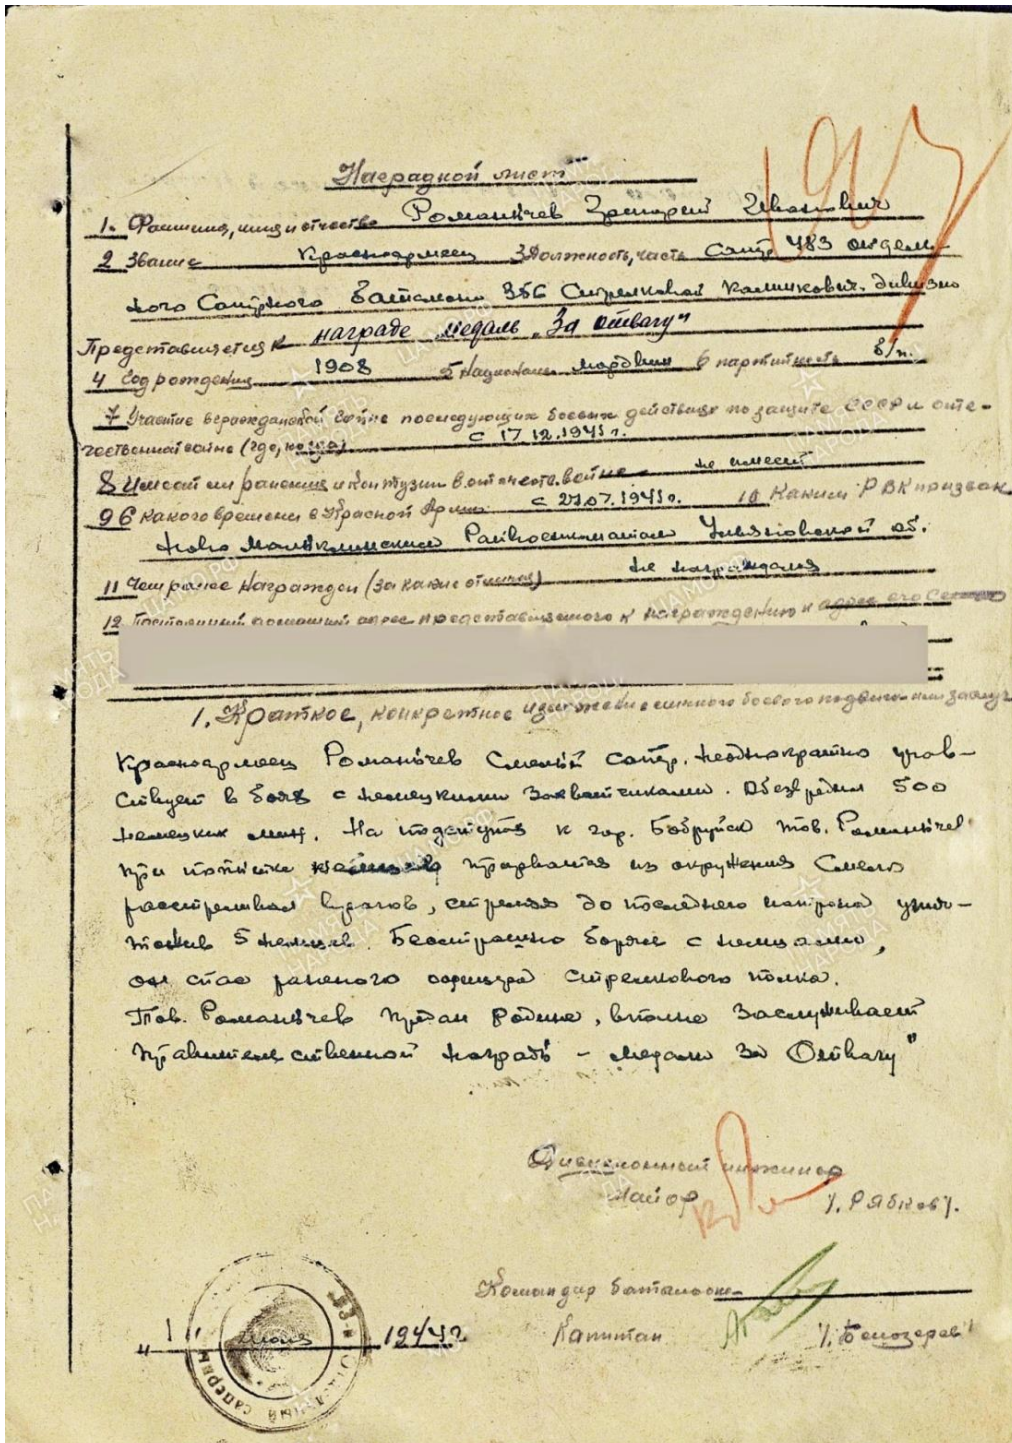 Наградной лист
1. Фамилия, имя и отчество Романычев Григорий Иванович
2 Звание Красноармеец 3 Должность, часть Сапер 483 отдель-
ного Саперного батальона 356 Стрелковой Калинкович. дивизии
Представляется к награде медаль „За отвагу"
4 Год рождения 1908 5 Национальн. мордвин 6 партийность б/п.
7 Участие в гражданской войне последующих боевых действиях по защите СССР и оте-
чественной войне (где, когда) с 17.12.1941 г.
8 Имеет ли ранения и контузии в отечеств. войне не имеет
9 С какого времени в Красной Арм. с 27.07.1941 г. 10 Каким РВК призван
Ново Малыклинским Райвоенкоматом Ульяновской об.
11 Чем ранее награжден (за какие отличия) не награждался
12 Постоянный домашний адрес представляемого к награждению и адрес его семьи
1. Краткое, конкретное изложение личного боевого подвига или заслуг
Красноармеец Романычев Смелый сапер. неоднократно учав-
ствует в боях с немецкими захватчиками. Обезвредил 500
немецких мин. На подступах к гор. Бобруйск тов. Романычев
при попытке немцев прорваться из окружения Смело
расстреливал врагов, стреляя до последнего патрона унич-
тожив 5 немцев. Бесстрашно борясь с немцами,
он спас раненого офицера стрелкового полка.
Тов. Романычев предан родине, вполне заслуживает
правительственной награды – медали За Отвагу"
Дивизионный инженер
Майор /. Рябков /.
Командир батальона
Капитан /. Белозеров /
„1" июля 1944 г